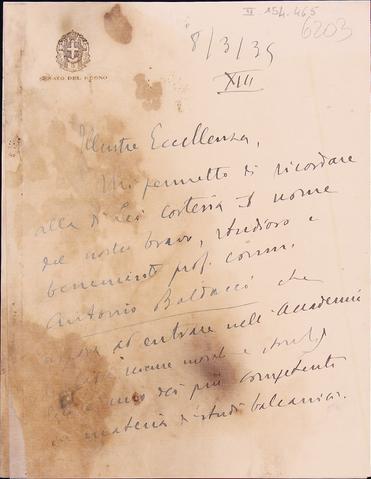 II 154.465
6203
SENATO DEL REGNO
8/3/35
XIII
Illustre Eccellenza,
Mi permetto di ricordare
alla di Lei cortesia il nome
del nostro bravo, studioso e
benemerito prof. comm.
Antonio Baldacci che
ad entrare nell'Accademia
e
uno dei più competenti
in materia di studi balcanici.